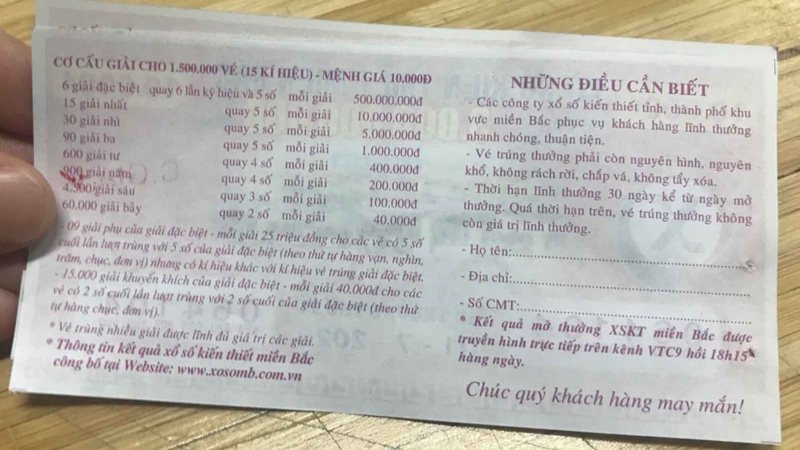 CƠ CẤU GIẢI CHO 1.500.000 VÉ (15 KÍ HIỆU) - MỆNH GIÁ 10.000Đ
6 giải đặc biệt quay 6 lần ký hiệu và 5 số mỗi giải 500.000.000đ
15 giải nhất quay 5 số mỗi giải 10.000.000đ
30 giải nhì quay 5 số mỗi giải 5.000.000đ
90 giải ba quay 5 số mỗi giải 1.000.000đ
600 giải tư quay 4 số mỗi giải 400.000đ
900 giải năm quay 4 số mỗi giải 200.000đ
4.500 giải sáu quay 3 số mỗi giải 100.000đ
60.000 giải bảy quay 2 số mỗi giải 40.000đ
- 09 giải phụ của giải đặc biệt - mỗi giải 25 triệu đồng cho các vé có 5 số
cuối lần lượt trùng với 5 số của giải đặc biệt (theo thứ tự hàng vạn, nghìn,
trăm, chục, đơn vị) nhưng có kí hiệu khác với kí hiệu vé trúng giải đặc biệt.
- 15.000 giải khuyến khích của giải đặc biệt - mỗi giải 40.000đ cho các
vé có 2 số cuối lần lượt trùng với 2 số cuối của giải đặc biệt (theo thứ
tự hàng chục, đơn vị).
* Vé trúng nhiều giải được lĩnh đủ giá trị các giải.
* Thông tin kết quả xổ số kiến thiết miền Bắc
công bố tại Website: www.xosomb.com.vn
NHỮNG ĐIỀU CẦN BIẾT
- Các công ty xổ số kiến thiết tỉnh, thành phố khu
vực miền Bắc phục vụ khách hàng lĩnh thưởng
nhanh chóng, thuận tiện.
- Vé trúng thưởng phải còn nguyên hình, nguyên
khổ, không rách rời, chấp vá, không tẩy xóa.
- Thời hạn lĩnh thưởng 30 ngày kể từ ngày mở
thưởng. Quá thời hạn trên, vé trúng thưởng không
còn giá trị lĩnh thưởng.
- Họ tên:
- Địa chỉ:
- Số CMT:
* Kết quả mở thưởng XSKT miền Bắc được
truyền hình trực tiếp trên kênh VTC9 hồi 18h15'
hàng ngày.
Chúc quý khách hàng may mắn!